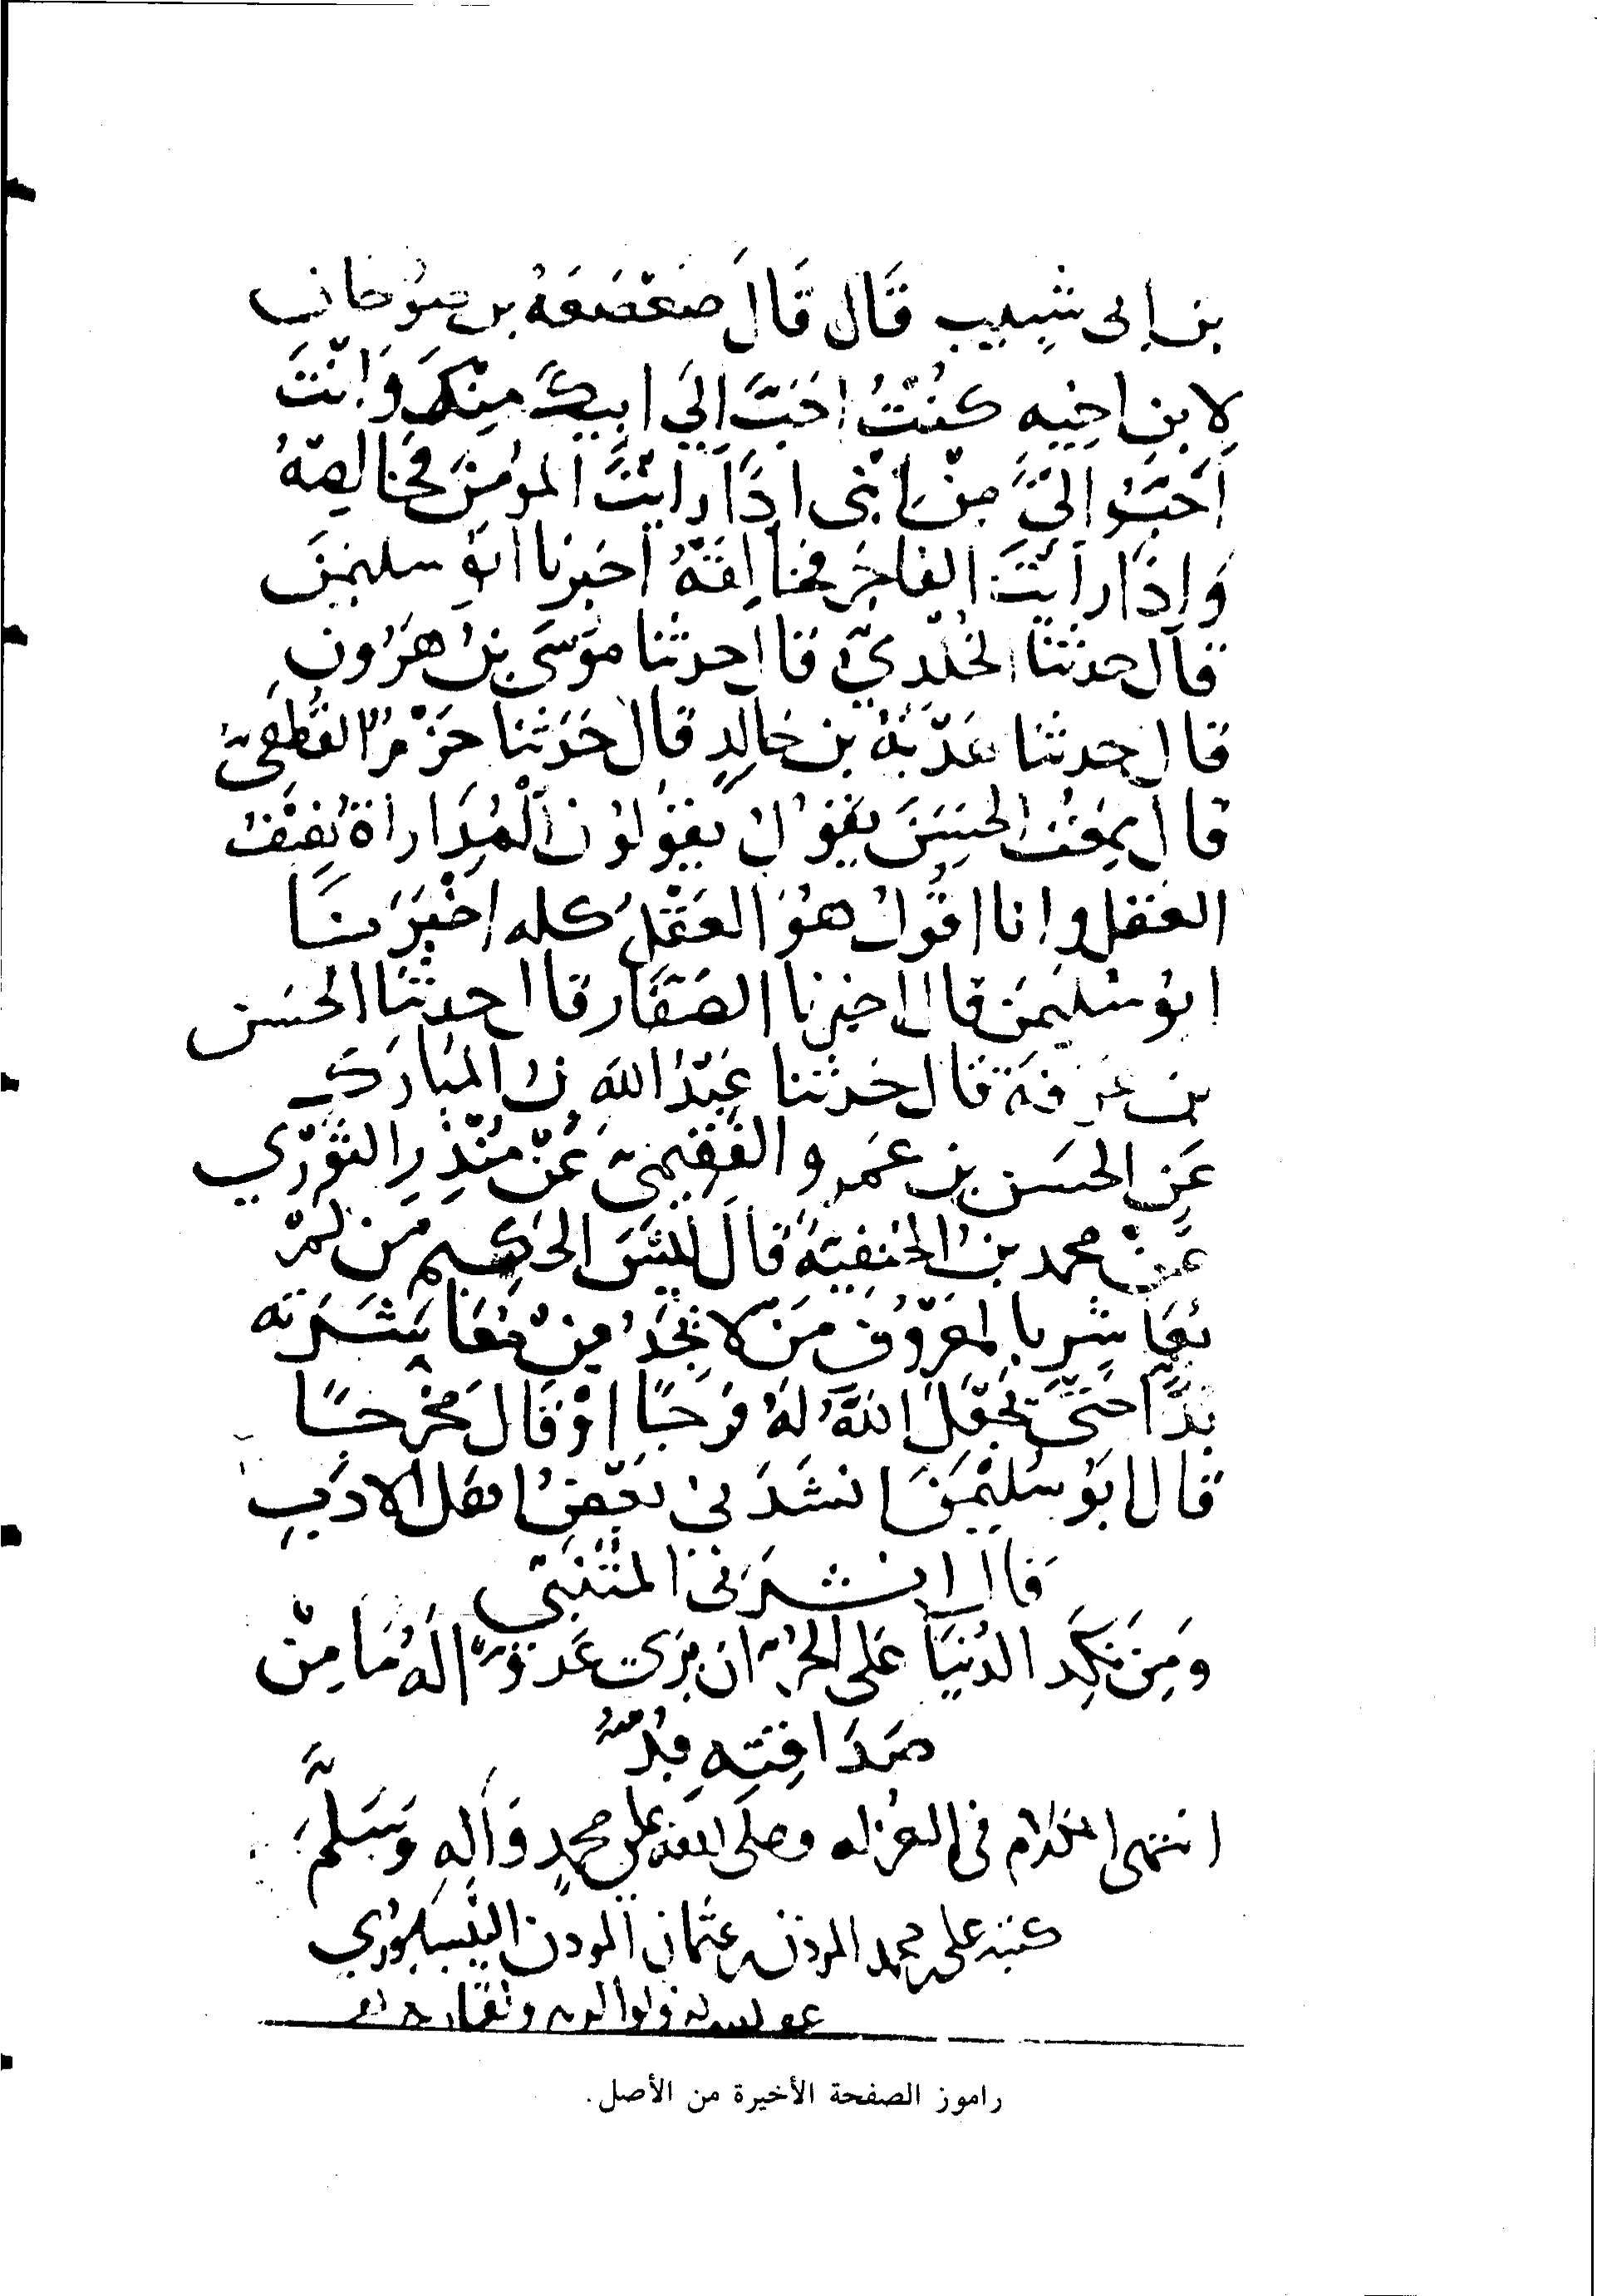 بن ابى شبيب قَال قَالَ صَعْصَعَهُ بن صُوحَان
لابن اخيه كنْتُ احَبَّ الَي ابيكَ مِنكَ وَانْتَ
اَحَبُّ اِليَّ مِنْ ابْنى اذَا رايْتَ المومنَ فخالِصْهُ
وَاذَا رايْتَ الفاجِرَ فخالِقْهُ اخبرنا ابُو سليمنَ
قال حدثنا الخُلْدِيُّ قال حدثنا مُوسَى بنُ هَرُون
قال حدثنا هُدْبَهُ بن خالِدٍ قال حَدَثنا حَزْمُ القُطَعِىُّ
قال سَمِعْتُ الحسَنَ يقُولُ يقولون المُدَاراةُ نِصْفُ
العقل وانا اقُولُ هُوَ العَقْلُ كله اخْبَرَنَا
ابُو سُليمنَ قال اخبرنا الصَفَّار قال حدثنا الحسَن
بن عرفة قال حَدثنا عَبْدُ اللهِ بن المُبارَك
عَنِ الحسَن بن عَمرو الفُقَيْمىِّ عَنْ مُنْذِرٍ الثوْرّي
عَنْ محمد بن الحنفيّةِ قالَ لَيْسَ الحكيم مَن لمْ
يُعَاشِر بالمعرُوف مَن لا يَجدُ مِنْ مُعَاشَرَتِه
بُدًّا حتَّى يَجْعَلَ اللهُ لهُ فَرَجًا اوْ قَالَ مَخْرَجًا
قال ابُو سُليْمَنَ انشَدَنىِ بَعْضُ اهل الادَبِ
قال انشدَنى المُتَنَبّى
وَمِنْ نكِدِ الدُنيَا عَلى الحُرِّ ان يَرَى عَدُوًّا لَهُ مَا مِنْ
صَدَاقتِهِ بُدُّ
انتهى الكلام فى العزله وصلى الله على محمدٍ وَآلِهِ وَسَلَّمَ
كتبه على بن محمد المؤذن بن عثمان المودن النيسابوري
راموز الصفحة الأخيرة من الأصل.